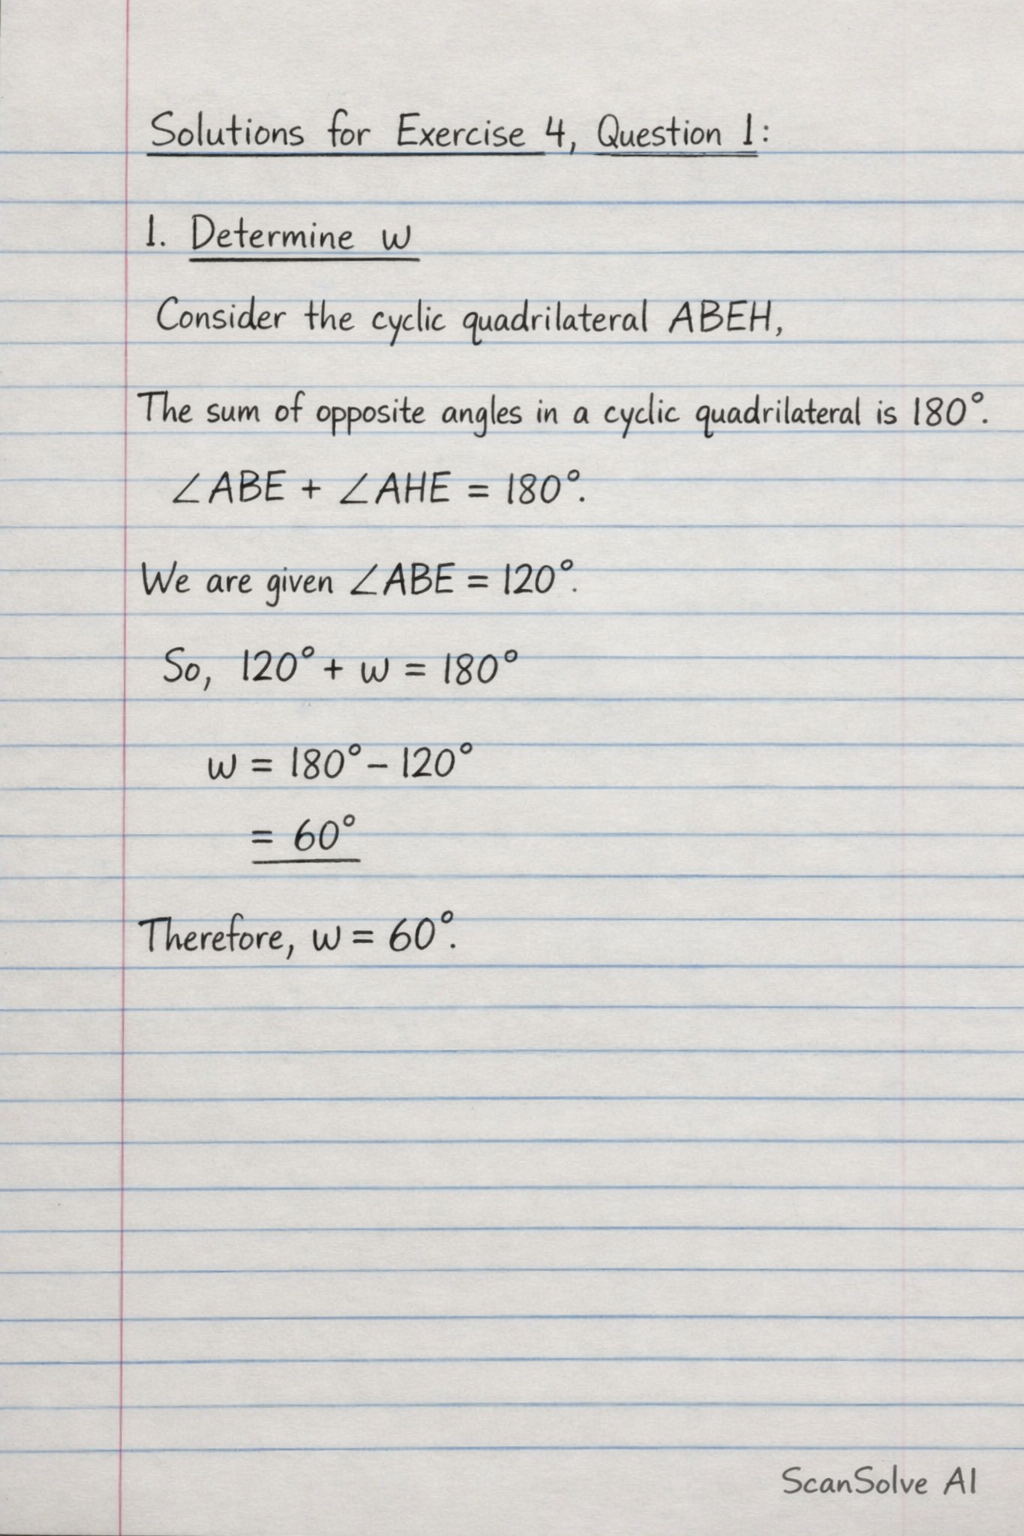 Solutions for Exercise 4, Question 1:
1. Determine w
Consider the cyclic quadrilateral ABEH,
The sum of opposite angles in a cyclic quadrilateral is 180°.
∠ABE + ∠AHE = 180°.
We are given ∠ABE = 120°.
So, 120° + w = 180°
w = 180° – 120°
= 60°
Therefore, w = 60°.
ScanSolve AI